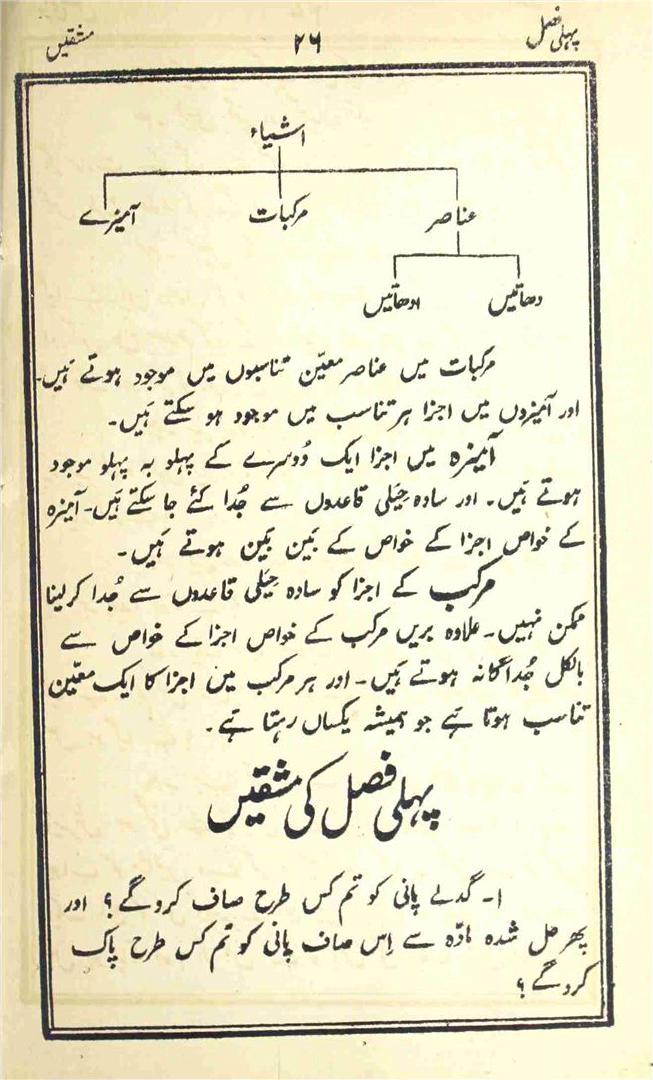 پہلی فصل
۲۶
مشقیں
اشیاء
عناصر
مرکبات
آمیزے
دھاتیں
ادھاتیں
مرکبات میں عناصر معیّن تناسبوں میں موجود ہوتے ہَیں۔
اور آمیزوں میں اجزا ہر تناسب میں موجود ہو سکتے ہَیں۔
آمیزہ میں اجزا ایک دُوسرے کے پہلو بہ پہلو موجود
ہوتے ہَیں۔ اور سادہ حِیَلی قاعدوں سے جُدا کئے جا سکتے ہَیں۔ آمیزہ
کے خواص اجزا کے خواص کے بَین بَین ہوتے ہَیں۔
مرکب کے اجزا کو سادہ حِیَلی قاعدوں سے جُدا کر لینا
ممکن نہیں۔ علاوہ بریں مرکب کے خواص اجزا کے خواص سے
بالکل جُداگانہ ہوتے ہَیں۔ اور ہر مرکب میں اجزا کا ایک معیّن
تناسب ہوتا ہَے جو ہمیشہ یکساں رہتا ہَے۔
پہلی فصل کی مشقیں
۱۔ گدلے پانی کو تم کس طرح صاف کرو گے؟ اور
پھر حل شدہ مادّہ سے اِس صاف پانی کو تم کس طرح پاک
کرو گے؟